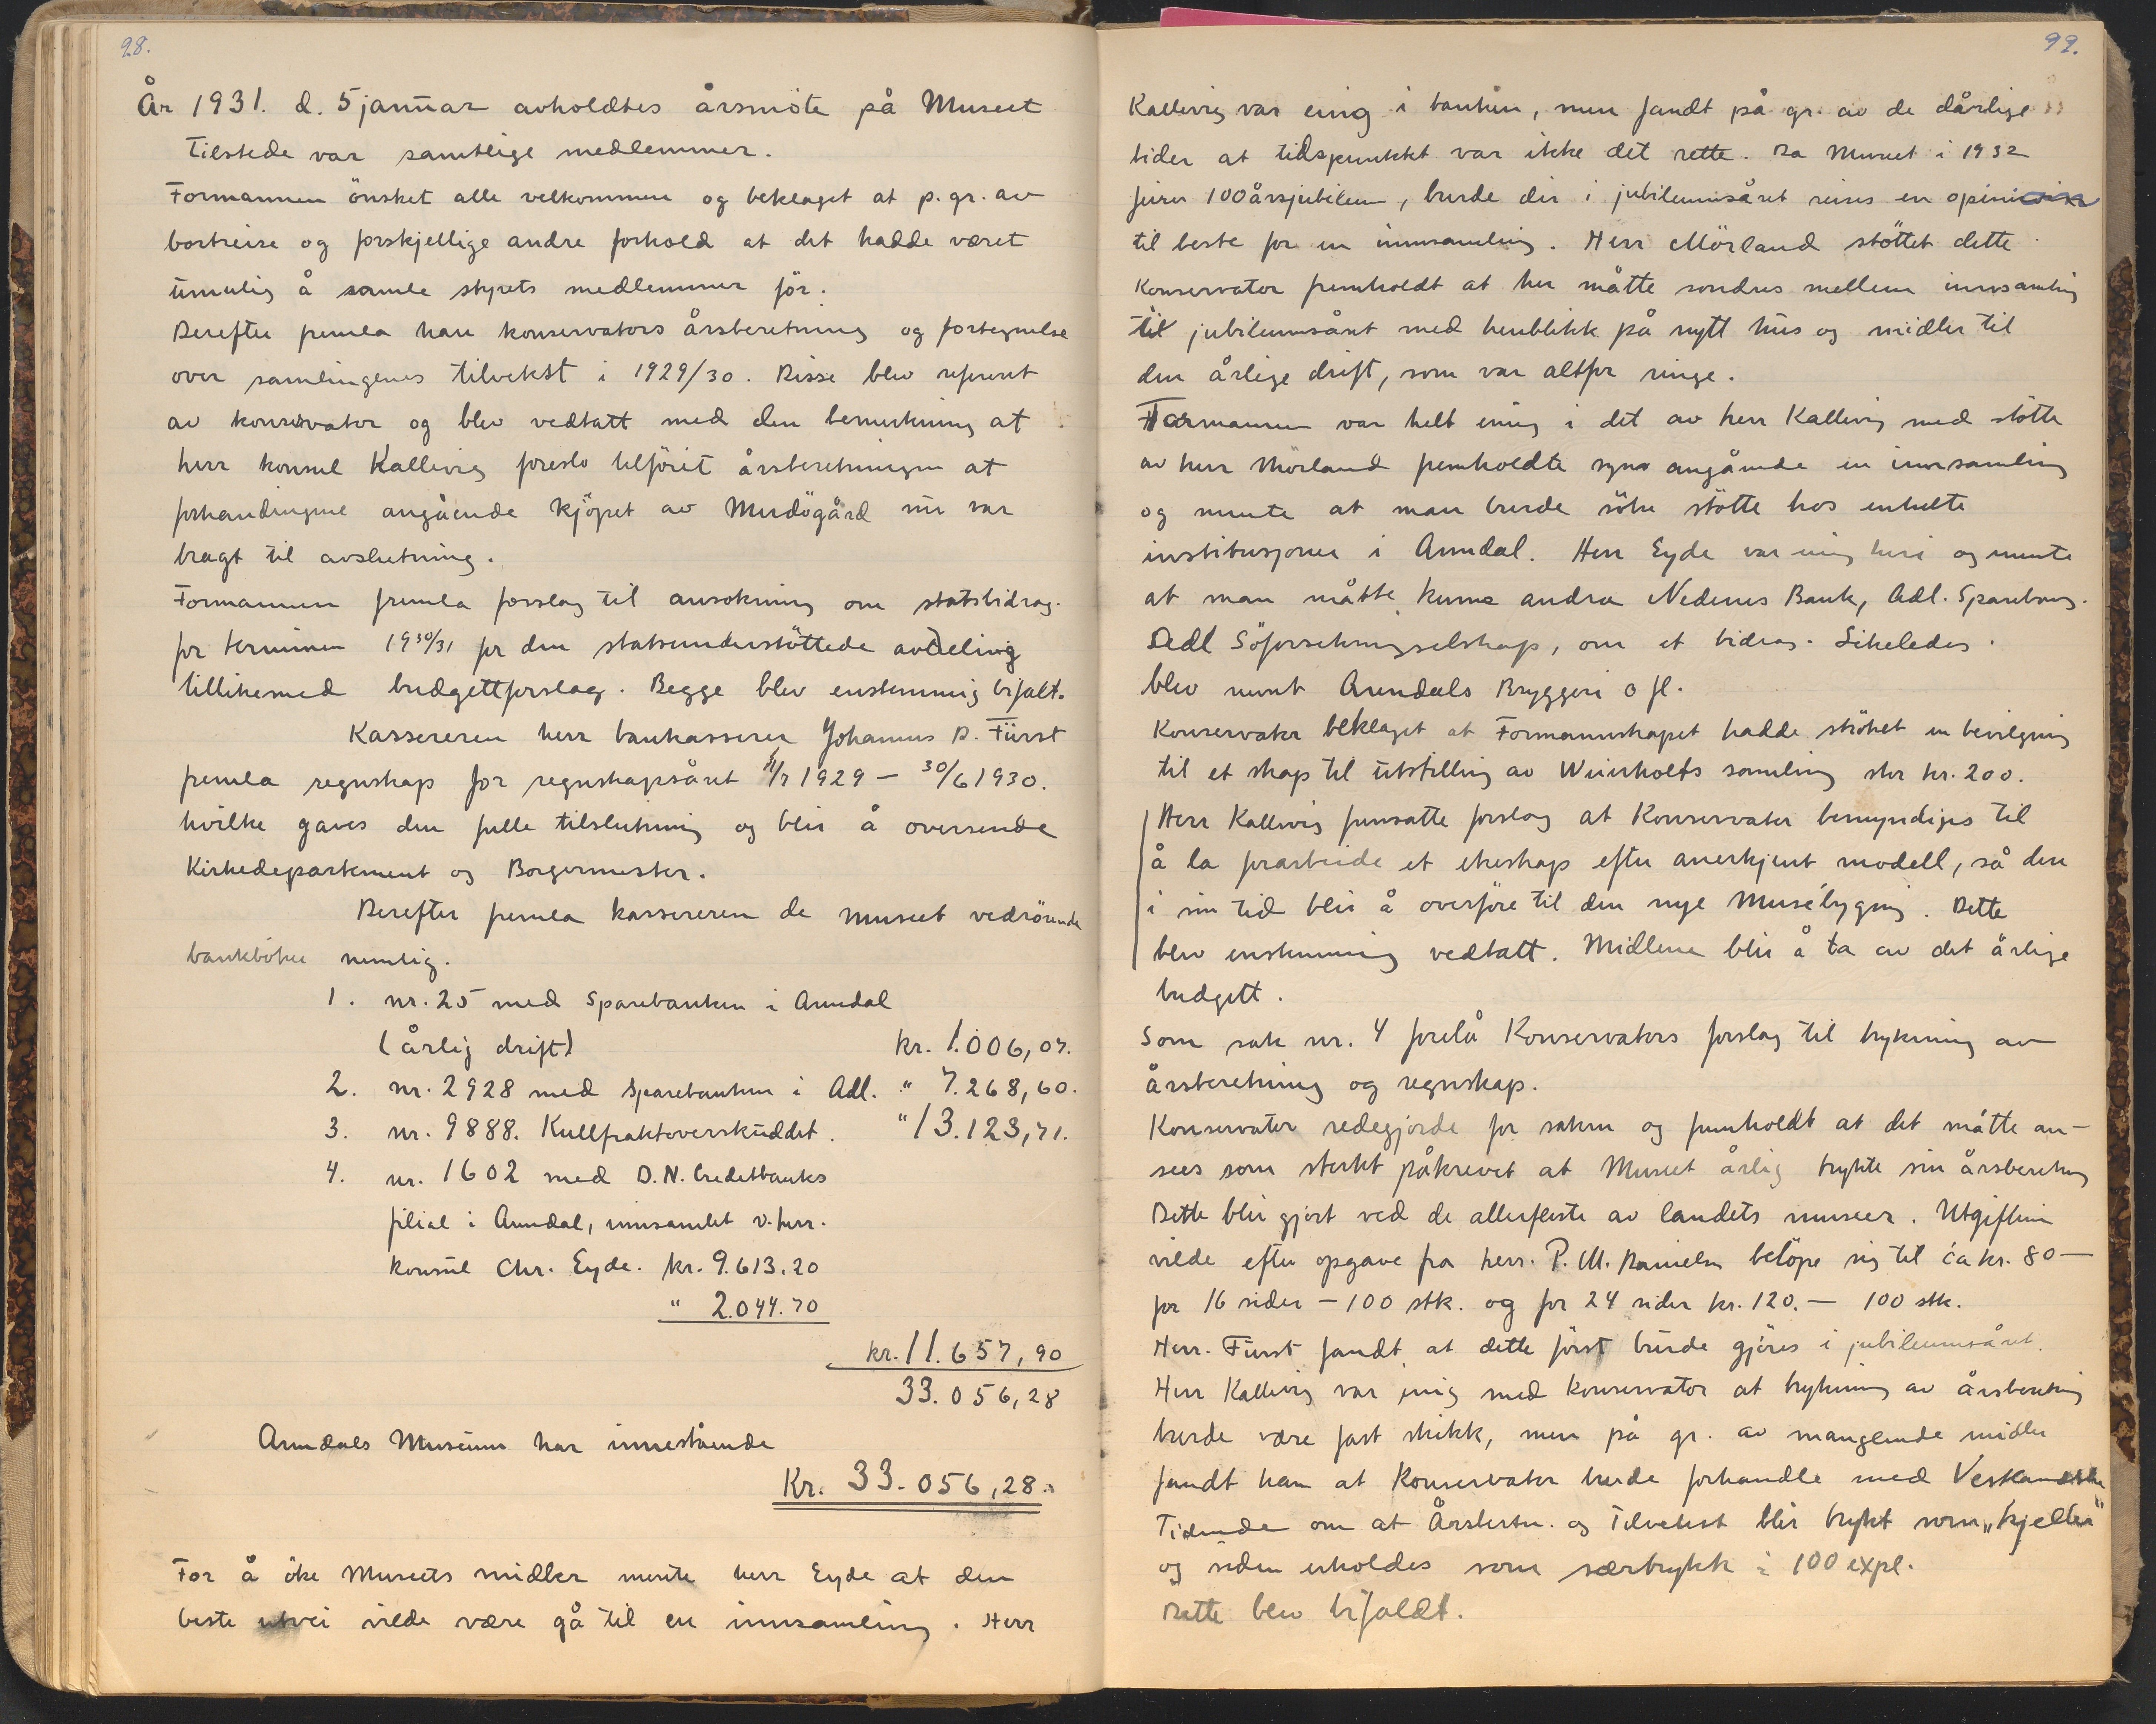 98.
År 1931. d. 5 januar avholdtes årsmöte på Museet
Tilstede var samtlige medlemmer.
Formannen önsket alle velkommen og beklaget at p. gr. av
bortreise og forskjellige andre forhold at det hadde været
umulig å samle styrets medlemmer för.
Derefter fremla han konservators årsberetning og fortegnelse
over samlingenes tilvekst i 1929/30. Disse blev referert
av konservator og blev vedtatt med den bemerkning at
herr konsul Kallevig foreslo tilföiet årsberetningen at
forhandlingene angående kjöpet av Merdögård nu var
bragt til avslutning.
Formannen fremla forslag til ansökning om statsbidrag
for terminen 1930/31 for den statsunderstöttede avdeling
tillikemed budgettforslag. Begge blev enstemmig bifalt.
Kassereren herr bankkasserer Johannes D. Fürst
fremla regnskap for regnskapsåret 1/7 1929 – 30/6 1930.
hvilke gaves den fulle tilslutning og blir å oversende
Kirkedepartement og Borgermester.
Derefter fremla kassereren de museet vedrörende
bankböker nemlig.
1. nr. 25 med Sparebanken i Arendal
(årlig drift) kr. 1.006,07.
2. nr. 2928 med Sparebanken i Adl. " 7.268,60.
3. nr. 9888. Kullfraktoverskuddet. " 13.123,71.
4. nr. 1602 med D.N. Creditbanks
filial i Arendal, innsamlet v. herr.
konsul Chr. Eyde. kr. 9.613.20
" 2.044.70
kr. 11.657,90
33.056,28
Arendals Museum har innestående
Kr. 33.056,28.
For å öke Museets midler mente herr Eyde at den
beste utvei vilde være gå til en innsamling. Herr
99.
Kallevig var enig i tanken, men fandt på gr. av de dårlige
tider at tidspunktet var ikke det rette. Da Museet i 1932
feirer 100årsjubileum, burde der i jubileumsåret reises en opinion
til beste for en innsamling. Herr Mörland stöttet dette.
Konservator fremholdt at her måtte sondres mellem innsamling
til jubileumsåret med henblikk på nytt hus og midler til
den årlige drift, som var altfor ringe.
Formannen var helt enig i det av herr Kallevig med stötte
av herr Mörland fremholdte syns angående en innsamling
og mente at man burde söke stötte hos enkelte
institusjoner i Arendal. Herr Eyde var enig heri og mente
at man måtte kunne andra Nedenes Bank, Adl. Sparebank.
Dedl Söforsekringsselskap, om et bidrag. Likeledes
blev nevnt Arendals Bryggeri o fl.
Konservator beklaget at Formannskapet hadde ströket en bevilgning
til et skap til utstilling av Weierholts samling stor kr. 200.
Herr Kallevig fremsatte forslag at Konservator bemyndiges til
å la forarbeide et ekeskap efter anerkjent modell, så den
i sin tid blir å overföre til den nye Musébygning. Dette
blev enstemmig vedtatt. Midlene blir å ta av det årlige
budgett.
Som sak nr. 4 forelå Konservators forslag til trykning av
årsberetning og regnskap.
Konservator redegjorde for saken og fremholdt at det måtte an-
sees som sterkt påkrevet at Museet årlig trykte sin årsberetning
Dette blir gjort ved de allerfleste av landets museer. Utgiften
vilde efter opgave fra herr. P. M. Danielsen belöpe sig til ca kr. 80 –
for 16 sider – 100 stk. og for 24 sider kr. 120. – 100 stk.
Herr. Fürst fandt at dette först burde gjöres i jubileumsåret.
Herr Kallevig var enig med konservator at trykning av årsberetning
burde være fast skikk, men på gr. av manglende midler
fandt han at Konservator burde forhandle med Vestlandske
Tidende om at Årsbertn. og Tilvekst blir trykt som "kjeller"
og siden erholdes som særtrykk i 100 expl.
Dette blev bifaldt.